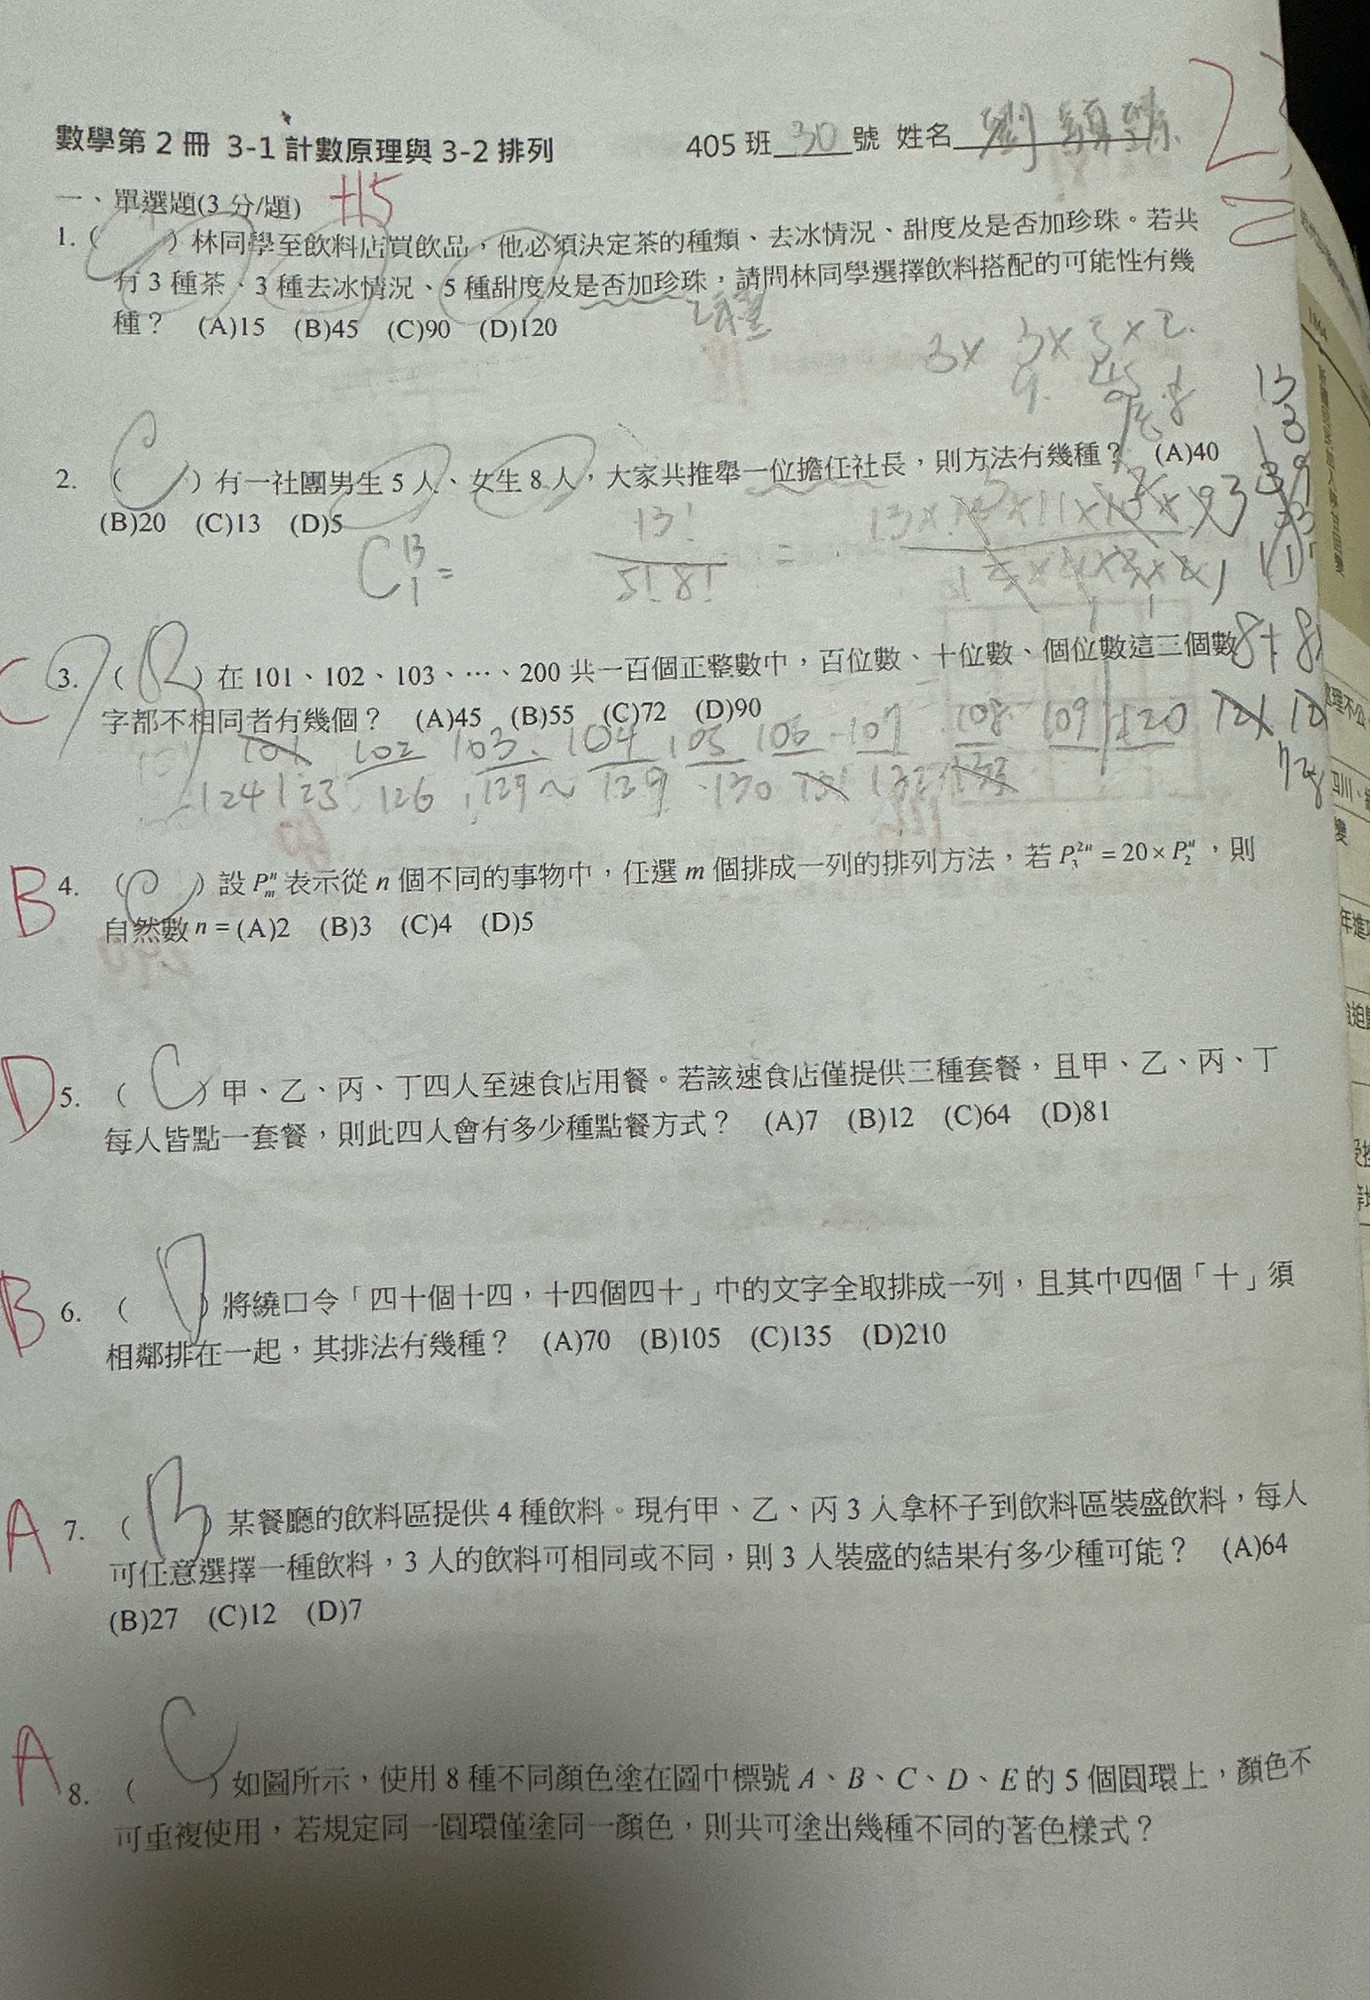 數學第 2 冊 3-1 計數原理與 3-2 排列 405 班 30 號 姓名 劉
一、單選題(3 分/題) +15
1. ( C ) 林同學至飲料店買飲品，他必須決定茶的種類、去冰情況、甜度及是否加珍珠。若共
有 3 種茶、3 種去冰情況、5 種甜度及是否加珍珠，請問林同學選擇飲料搭配的可能性有幾
種？ (A)15 (B)45 (C)90 (D)120
2種
3 × 3 × 5 × 2
9. 45
2. ( C ) 有一社團男生 5 人、女生 8 人，大家共推舉一位擔任社長，則方法有幾種？ (A)40
(B)20 (C)13 (D)5
C 13 1 = 13! / 5! 8! =
C 3. ( B ) 在 101、102、103、…、200 共一百個正整數中，百位數、十位數、個位數這三個數
字都不相同者有幾個？ (A)45 (B)55 (C)72 (D)90
101 102 103 104 105 106 107 108 109 120 121
124 123 126 129 ~ 129 130 131 132 133
B 4. ( C ) 設 Pⁿₘ 表示從 n 個不同的事物中，任選 m 個排成一列的排列方法，若 P₃²ⁿ = 20 × P₂ⁿ，則
自然數 n = (A)2 (B)3 (C)4 (D)5
D 5. ( C ) 甲、乙、丙、丁四人至速食店用餐。若該速食店僅提供三種套餐，且甲、乙、丙、丁
每人皆點一套餐，則此四人會有多少種點餐方式？ (A)7 (B)12 (C)64 (D)81
B 6. ( D ) 將繞口令「四十個十四，十四個四十」中的文字全取排成一列，且其中四個「十」須
相鄰排在一起，其排法有幾種？ (A)70 (B)105 (C)135 (D)210
A 7. ( B ) 某餐廳的飲料區提供 4 種飲料。現有甲、乙、丙 3 人拿杯子到飲料區裝盛飲料，每人
可任意選擇一種飲料，3 人的飲料可相同或不同，則 3 人裝盛的結果有多少種可能？ (A)64
(B)27 (C)12 (D)7
A 8. ( C ) 如圖所示，使用 8 種不同顏色塗在圖中標號 A、B、C、D、E 的 5 個圓環上，顏色不
可重複使用，若規定同一圓環僅塗同一顏色，則共可塗出幾種不同的著色樣式？